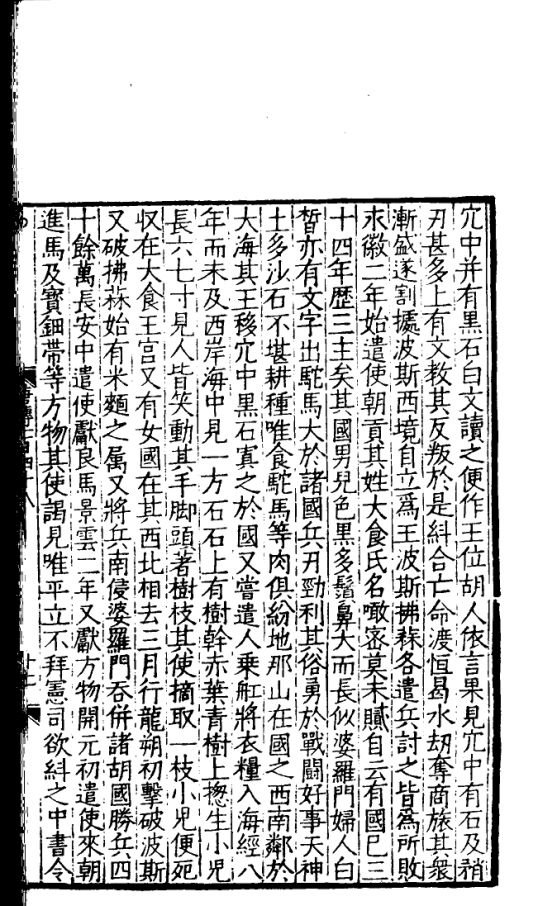 穴中并有黑石白文讀之便作王位胡人依言果見穴中有石及矟
刃甚多上有文教其反叛於是糾合亡命渡恒曷水刼奪商旅其衆
漸盛遂割據波斯西境自立爲王波斯拂菻各遣兵討之皆爲所敗
永徽二年始遣使朝貢其姓大食氏名噉密莫末膩自云有國已三
十四年歷三主矣其國男兒色黑多鬚鼻大而長似婆羅門婦人白
皙亦有文字出駝馬大於諸國兵刃勁利其俗勇於戰鬪好事天神
土多沙石不堪耕種唯食駝馬等肉俱紛地那山在國之西南鄰於
大海其王移穴中黑石寘之於國又嘗遣人乗舡將衣糧入海經八
年而未及西岸海中見一方石石上有樹幹赤葉青樹上揔生小兒
長六七寸見人皆笑動其手脚頭著樹枝其使摘取一枝小兒便死
収在大食王宫又有女國在其西北相去三月行龍朔初擊破波斯
又破拂菻始有米麵之属又將兵南侵婆羅門吞併諸胡國勝兵四
十餘萬長安中遣使獻良馬景雲二年又獻方物開元初遣使來朝
進馬及寳鈿帶等方物其使謁見唯平立不拜憲司欲糾之中書令